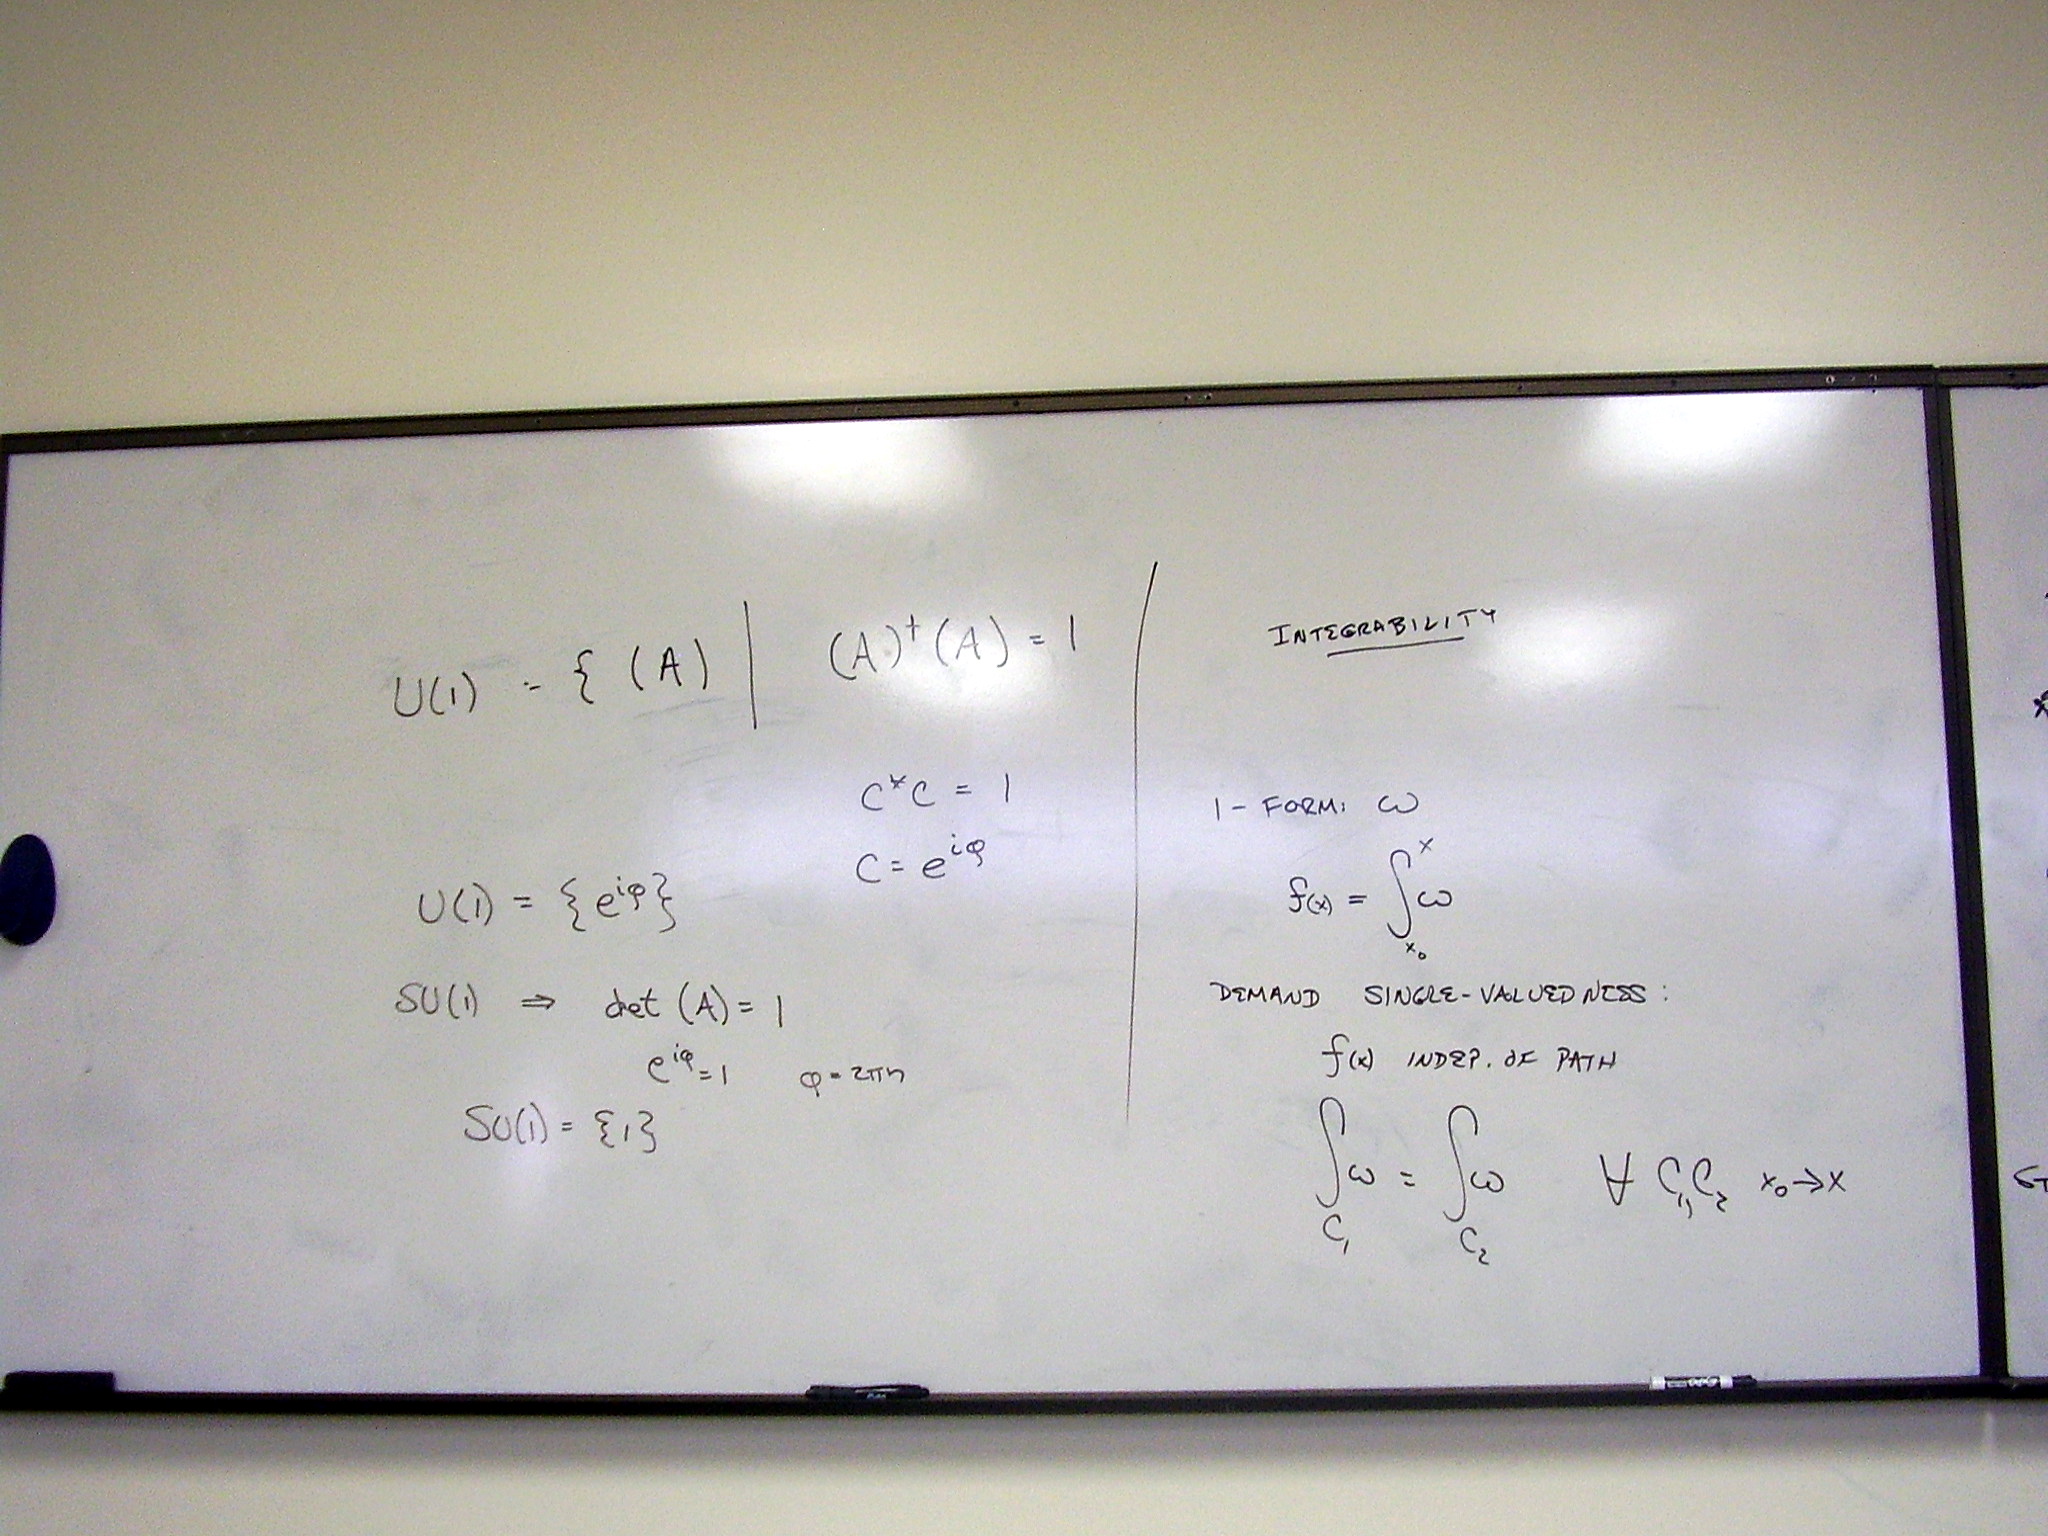 U(1) = { (A) | (A)† (A) = 1
C*C = 1
C = e^{iφ}
U(1) = {e^{iφ}}
SU(1) ⇒ det (A) = 1
e^{iφ} = 1 φ = 2πn
SU(1) = {1}
INTEGRABILITY
1 - FORM: ω
f(x) = ∫_{x₀}^{x} ω
DEMAND SINGLE-VALUEDNESS:
f(x) INDEP. OF PATH
∫_{C₁} ω = ∫_{C₂} ω ∀ C₁, C₂ x₀→x